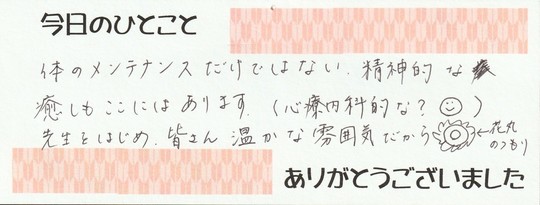 今日のひとこと
体のメンテナンスだけではない、精神的な
癒しもここにはあります。(心療内科的な?)
先生をはじめ、皆さん温かな雰囲気だから ←花丸
のつもり
ありがとうございました